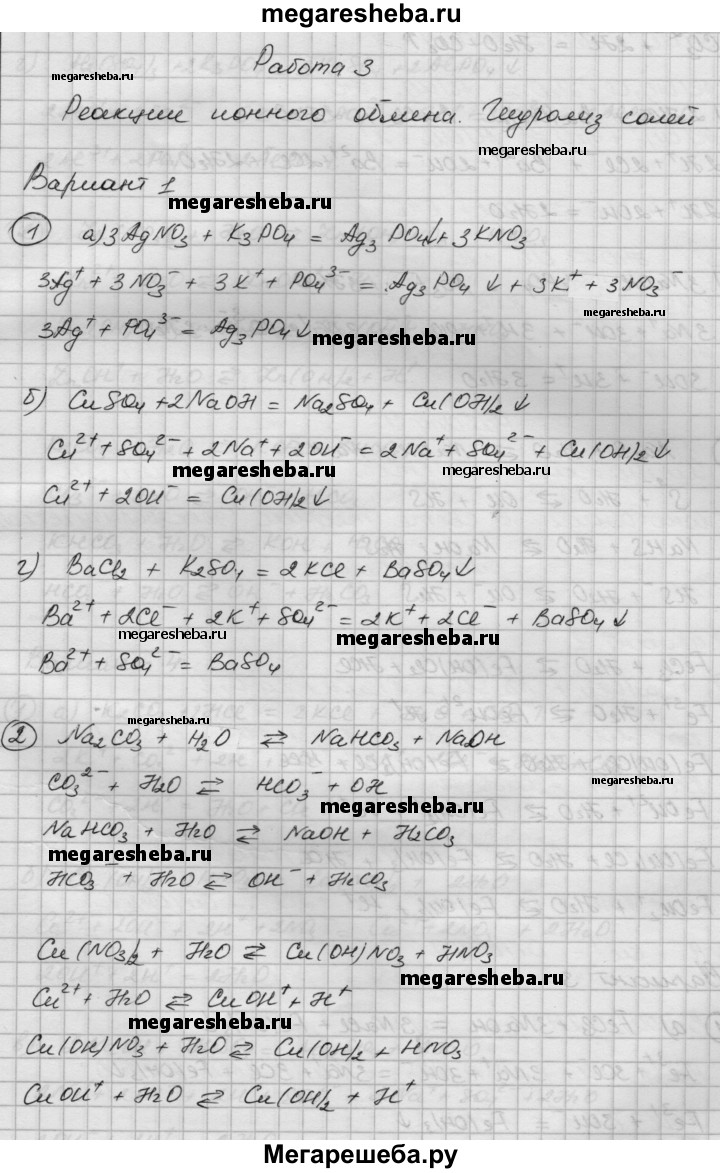 megaresheba.ru
Работа 3
megaresheba.ru
Реакции ионного обмена. Гидролиз солей
megaresheba.ru
Вариант 1
megaresheba.ru
1 а) 3AgNO₃ + K₃PO₄ = Ag₃PO₄↓ + 3KNO₃
3Ag⁺ + 3NO₃⁻ + 3K⁺ + PO₄³⁻ = Ag₃PO₄↓ + 3K⁺ + 3NO₃⁻
megaresheba.ru
3Ag⁺ + PO₄³⁻ = Ag₃PO₄↓
megaresheba.ru
б) CuSO₄ + 2NaOH = Na₂SO₄ + Cu(OH)₂↓
Cu²⁺ + SO₄²⁻ + 2Na⁺ + 2OH⁻ = 2Na⁺ + SO₄²⁻ + Cu(OH)₂↓
megaresheba.ru
megaresheba.ru
Cu²⁺ + 2OH⁻ = Cu(OH)₂↓
г) BaCl₂ + K₂SO₄ = 2KCl + BaSO₄↓
Ba²⁺ + 2Cl⁻ + 2K⁺ + SO₄²⁻ = 2K⁺ + 2Cl⁻ + BaSO₄↓
megaresheba.ru
megaresheba.ru
Ba²⁺ + SO₄²⁻ = BaSO₄
megaresheba.ru
2 Na₂CO₃ + H₂O ⇄ NaHCO₃ + NaOH
CO₃²⁻ + H₂O ⇄ HCO₃⁻ + OH
megaresheba.ru
megaresheba.ru
NaHCO₃ + H₂O ⇄ NaOH + H₂CO₃
megaresheba.ru
HCO₃⁻ + H₂O ⇄ OH⁻ + H₂CO₃
Cu(NO₃)₂ + H₂O ⇄ Cu(OH)NO₃ + HNO₃
megaresheba.ru
Cu²⁺ + H₂O ⇄ CuOH⁺ + H⁺
megaresheba.ru
Cu(OH)NO₃ + H₂O ⇄ Cu(OH)₂ + HNO₃
CuOH⁺ + H₂O ⇄ Cu(OH)₂ + H⁺
Мегарешеба.ру